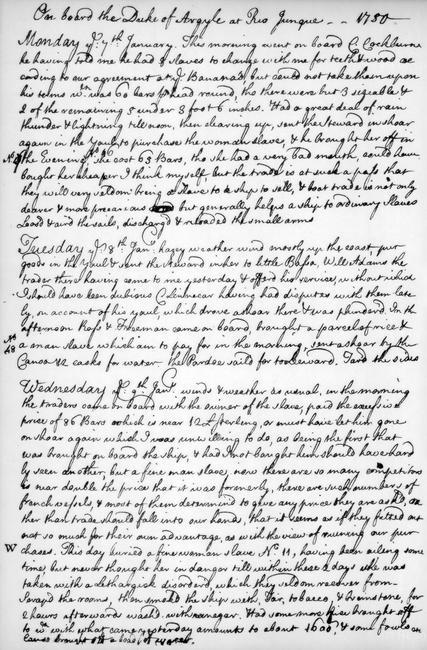 On board the Duke of Argyle at Rio Junque -- 1750
Monday ye 7th January. This morning went on board C: Cockburne
he having told me he had 5 slaves to change with me for teeth & wood ac
cording to our agreement at ye Bananas but could not take them upon
his terms wch was 60 bars pr head round, tho there were but 3 sizeable &
2 of the remaining 5 under 3 foot 6 inches. Had a great deal of rain
thunder & lightning till noon, then clearing up, sent the Steward in shoar
again in the Yaul to purchase the woman slave, & he brought her off in
No 47 the evening. She cost 63 Bars, tho she had a very bad mouth, could have
bought her cheaper I think myself but the trade is at such a pass that
they will very seldom bring a slave to a ship to sell, & boat trade is not only
dearer & more precarious but generally helps a ship to ordinary slaves
Loos'd & air'd the sails, discharg'd & reloaded the small arms
Tuesday ye 8th Jany. hazey weather wind mostly up the coast, put
goods in the yaul & sent the steward in her to little Bassa, Will Adams the
trader there having come to me yesterday & offerd his service, without which
I should have been dubious C: Lemacar having had disputes with them late
ly, on account of his yaul, which drove ashoar there & was plunderd. In the
afternoon Ross & Freeman came on board, brought a parcel of rice &
No 48 a man slave which am to pay for in the morning, sent ashoar by the
Canoa 12 casks for water. the Pardoe saild for to leeward. Tard the sides
Wednesday ye 9th Jany. winds & weather as usual, in the morning
the traders came on board with the owner of the slave, paid the excessive
price of 86 Bars which is near 12£ sterling, or must have let him gone
on shoar again which I was unwilling to do, as being the first that
was brought on board the ship, & had I not bought him should have hard
ly seen another, but a fine man slave, now there are so many competitors
is near double the price that it was formerly, there are such numbers of
french vessels, & most of them determind to give any price they are askd, ra
ther than trade should fall into our hands, that it seems as if they fitted out
not so much for their own advantage, as with the view of ruining our pur
W chases. This day buried a fine woman slave No. 11, having been ailing some
time, but never thought her in danger till within these 2 days she was
taken with a lethargick disorder, which they seldom recover from.
Scrap'd the rooms, then smoked the ship with, Tar, tobacco, & brimstone, for
2 hours afterwards wash'd with vinegar. Had some more rice brought off
to us with what came yesterday amounts to about 1600, & some fowls. an
canoe brought off a load of water.